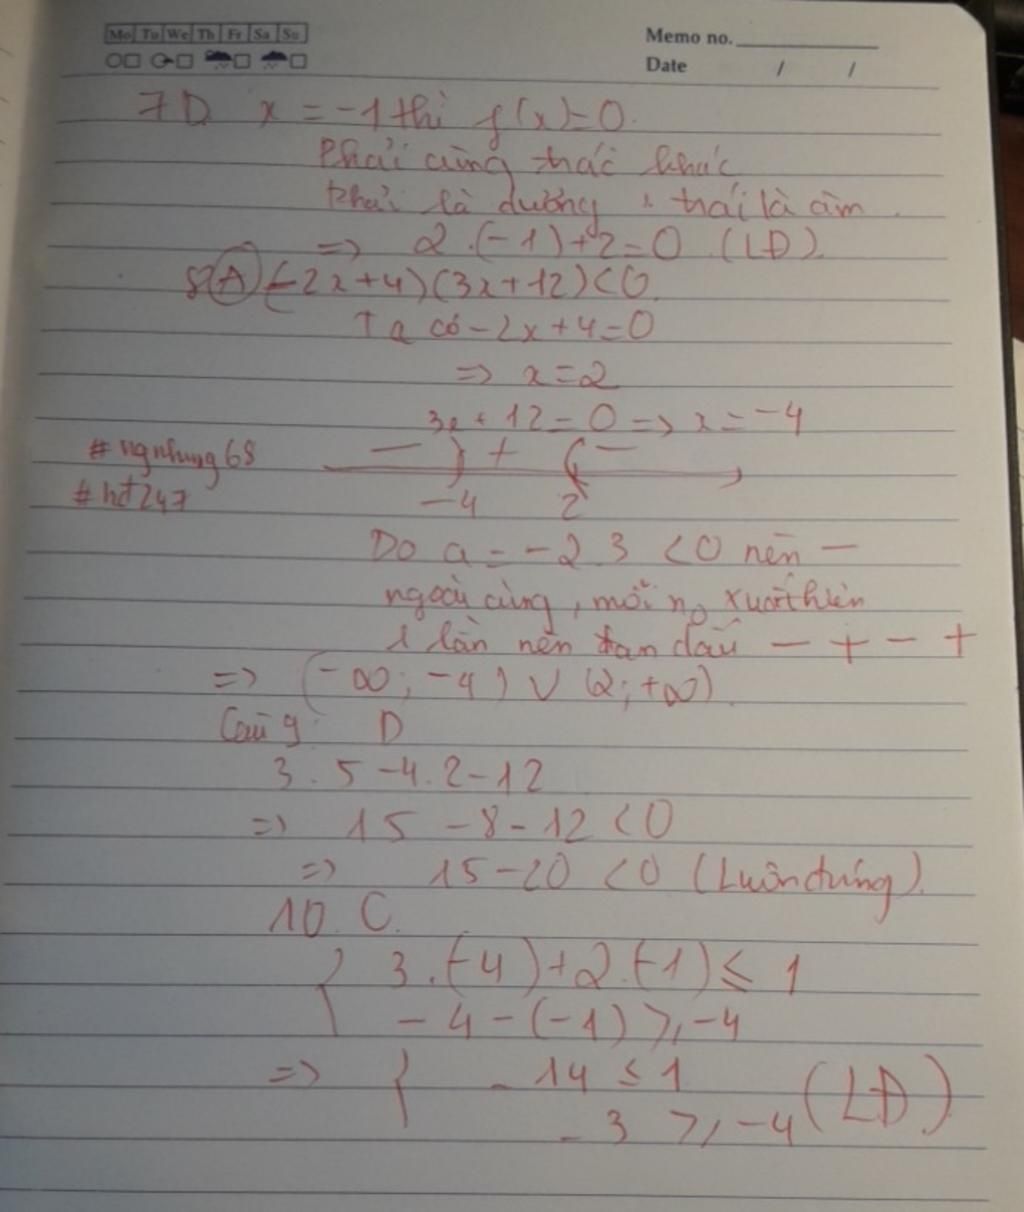 Mo Tu We Th Fr Sa Su
Memo no.
Date / /
7D x = -1 thì f(x)=0.
Phải cùng trác khác
Phải là dương, trái là âm.
=> 2.(-1)+2=0 (LĐ)
8(A) (-2x+4)(3x+12)<0
Ta có -2x+4=0
=> x=2
3x+12=0 => x=-4
#ngnhung68
#hđ247
— ) + ( —
-4 2
Do a = -2.3 <0 nên —
ngoài cùng, mỗi no xuất hiện
1 lần nên đan dấu - + - +
=> (-∞; -4) ∪ (2; +∞)
Câu 9: D
3.5-4.2-12
=> 15-8-12<0
=> 15-20<0 (Luôn đúng).
10. C.
{ 3.(-4)+2.(-1) ≤ 1
-4-(-1) ≥ -4
=> { -14 ≤ 1
-3 ≥ -4 (LĐ)